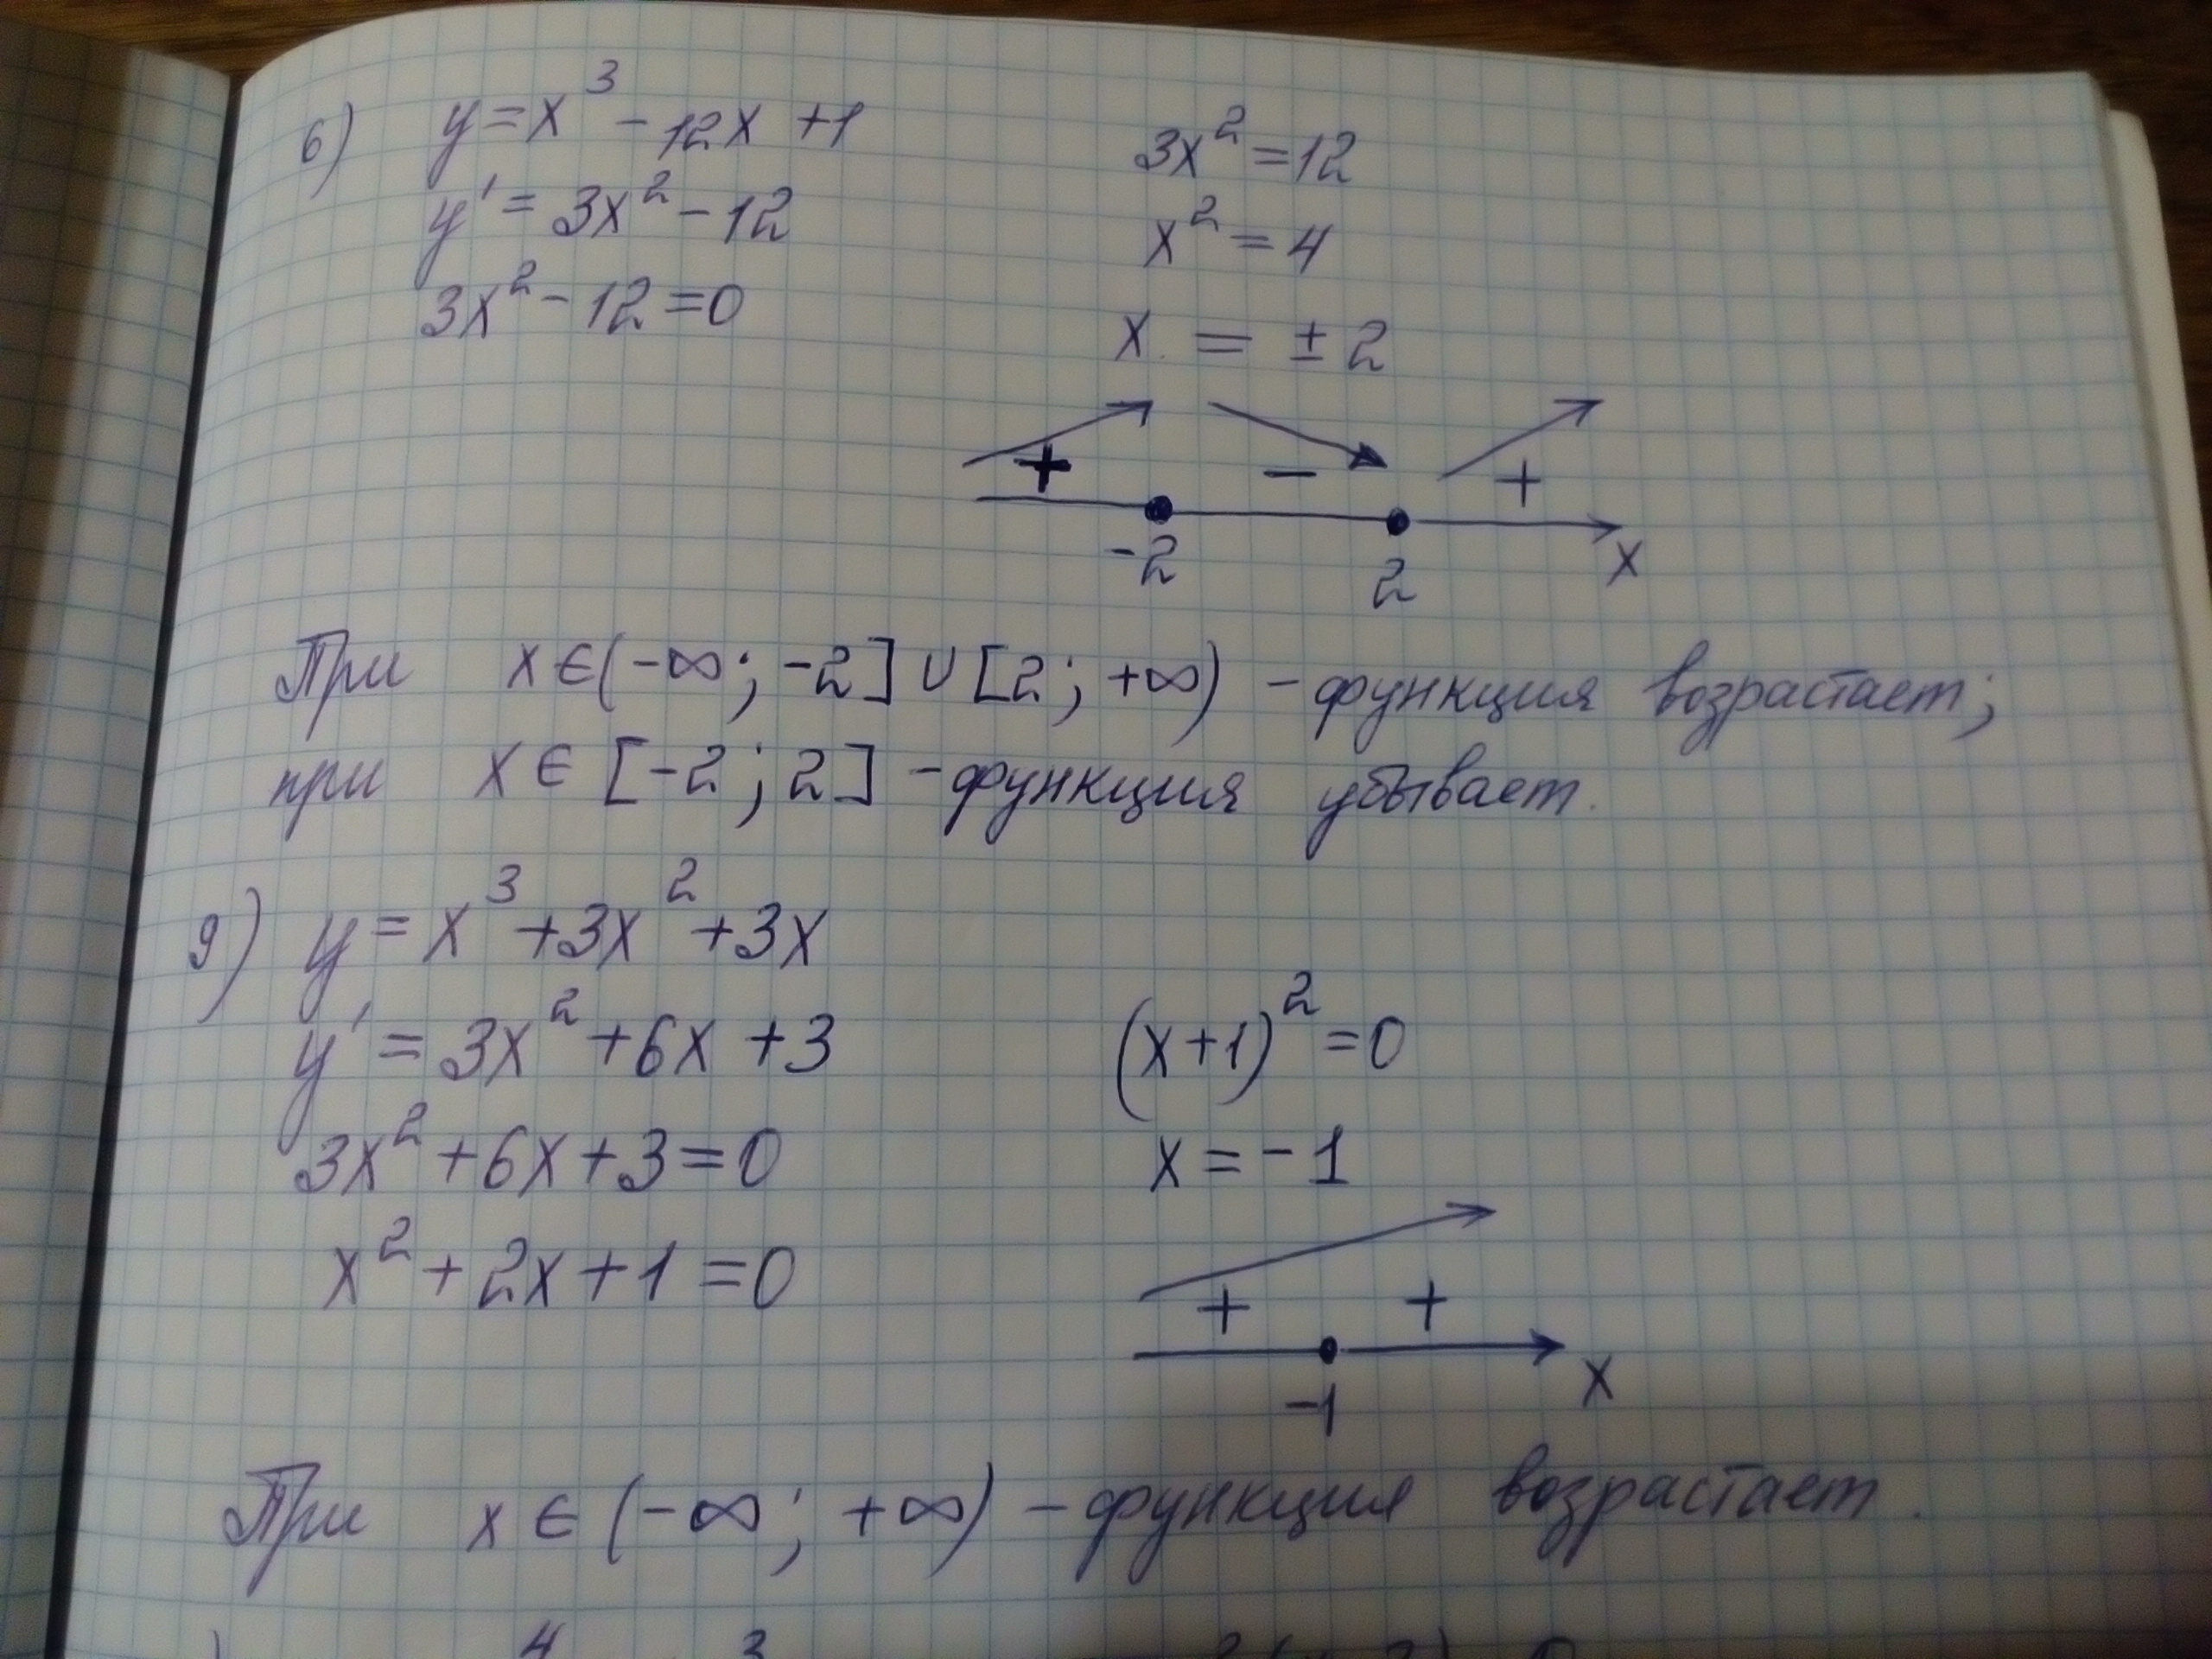 6) y = x³ - 12x + 1
y' = 3x² - 12
3x² - 12 = 0
3x² = 12
x² = 4
x = ± 2
+ - +
-2 2 x
При x ∈ (-∞; -2] ∪ [2; +∞) - функция возрастает;
при x ∈ [-2; 2] - функция убывает.
9) y = x³ + 3x² + 3x
y' = 3x² + 6x + 3
3x² + 6x + 3 = 0
x² + 2x + 1 = 0
(x+1)² = 0
x = -1
+ +
-1 x
При x ∈ (-∞; +∞) - функция возрастает.